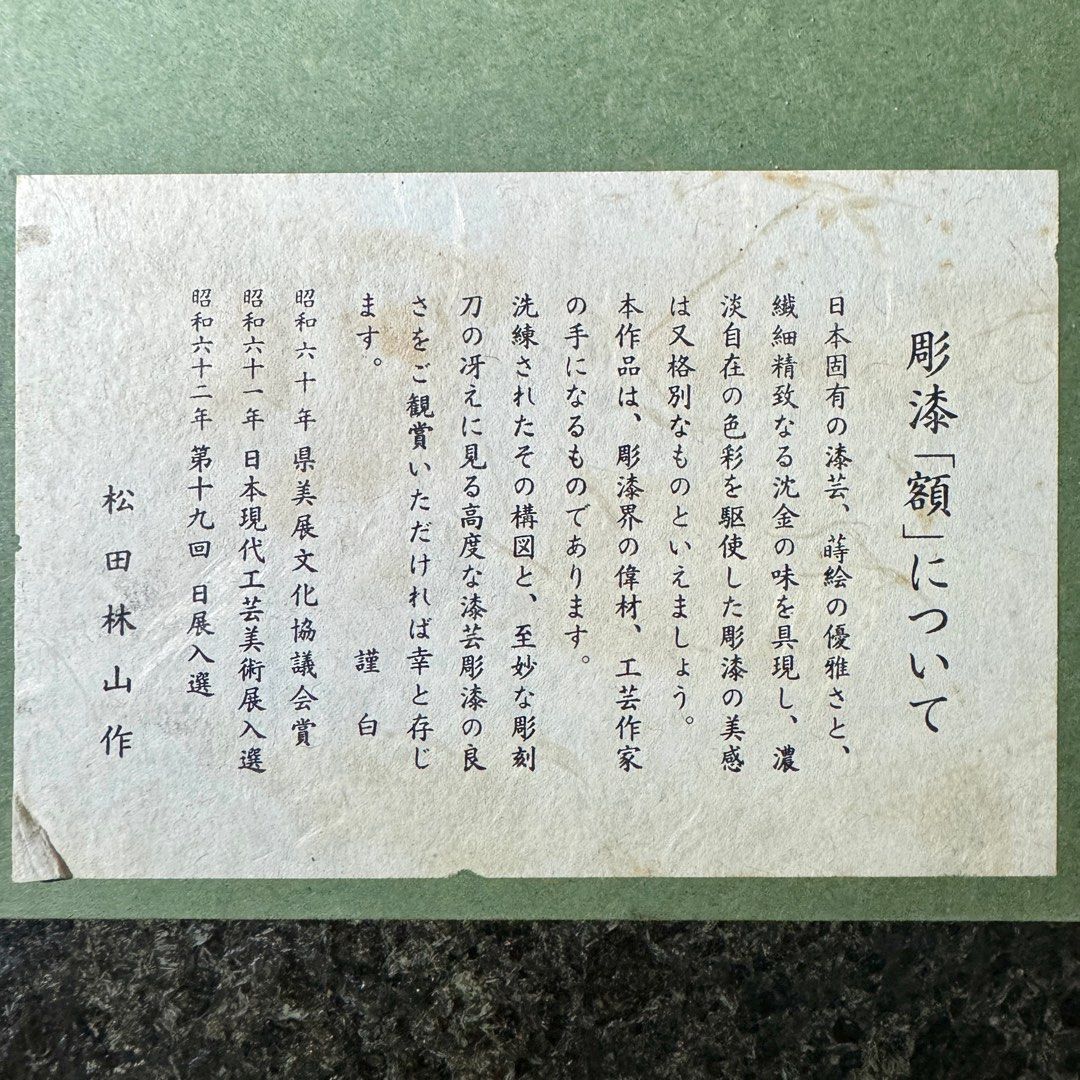 彫漆「額」について
日本固有の漆芸、蒔絵の優雅さと、
繊細精致なる沈金の味を具現し、濃
淡自在の色彩を駆使した彫漆の美感
は又格別なものといえましょう。
本作品は、彫漆界の偉材、工芸作家
の手になるものであります。
洗練されたその構図と、至妙な彫刻
刀の冴えに見る高度な漆芸彫漆の良
さをご観賞いただければ幸と存じ
ます。 謹白
昭和六十年 県美展文化協議会賞
昭和六十一年 日本現代工芸美術展入選
昭和六十二年 第十九回 日展入選
松田林山作